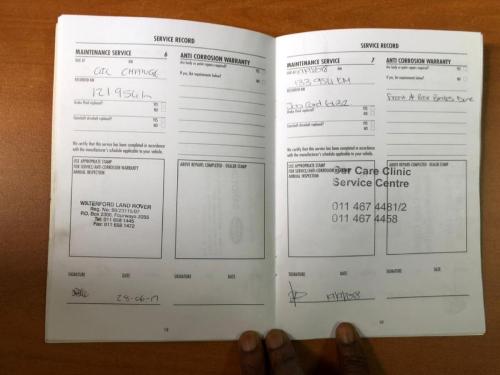 SERVICE RECORD
MAINTENANCE SERVICE 6
DUE AT KM
OIL CHANGE
RECORDED KM
121 954 km
Brake fluid replaced? YES
NO
YES
NO
We certify that this service has been completed in accordance
with the manufacturer's schedule applicable to your vehicle.
USE APPROPRIATE STAMP
FOR SERVICE/ANTI CORROSION WARRANTY
ANNUAL INSPECTION
WATERFORD LAND ROVER
P.O. Box 2300, Fourways 2055
Tel: 011 658 1445
Fax: 011 658 1472
SIGNATURE DATE
28-06-17
ANTI CORROSION WARRANTY
Are body or paint repairs required? YES
NO
If yes, list requirements below?
ABOVE REPAIRS COMPLETED - DEALER STAMP
SIGNATURE DATE
SERVICE RECORD
MAINTENANCE SERVICE 7
DUE AT KM
RECORDED KM
133 954 KM
Brake fluid replaced? YES
NO
YES
NO
We certify that this service has been completed in accordance
with the manufacturer's schedule applicable to your vehicle.
USE APPROPRIATE STAMP
FOR SERVICE/ANTI CORROSION WARRANTY
ANNUAL INSPECTION
Care Clinic
Service Centre
011 467 4481/2
011 467 4458
SIGNATURE DATE
ANTI CORROSION WARRANTY
Are body or paint repairs required? YES
NO
If yes, list requirements below?
Front & Rear Brakes Done
ABOVE REPAIRS COMPLETED - DEALER STAMP
SIGNATURE DATE